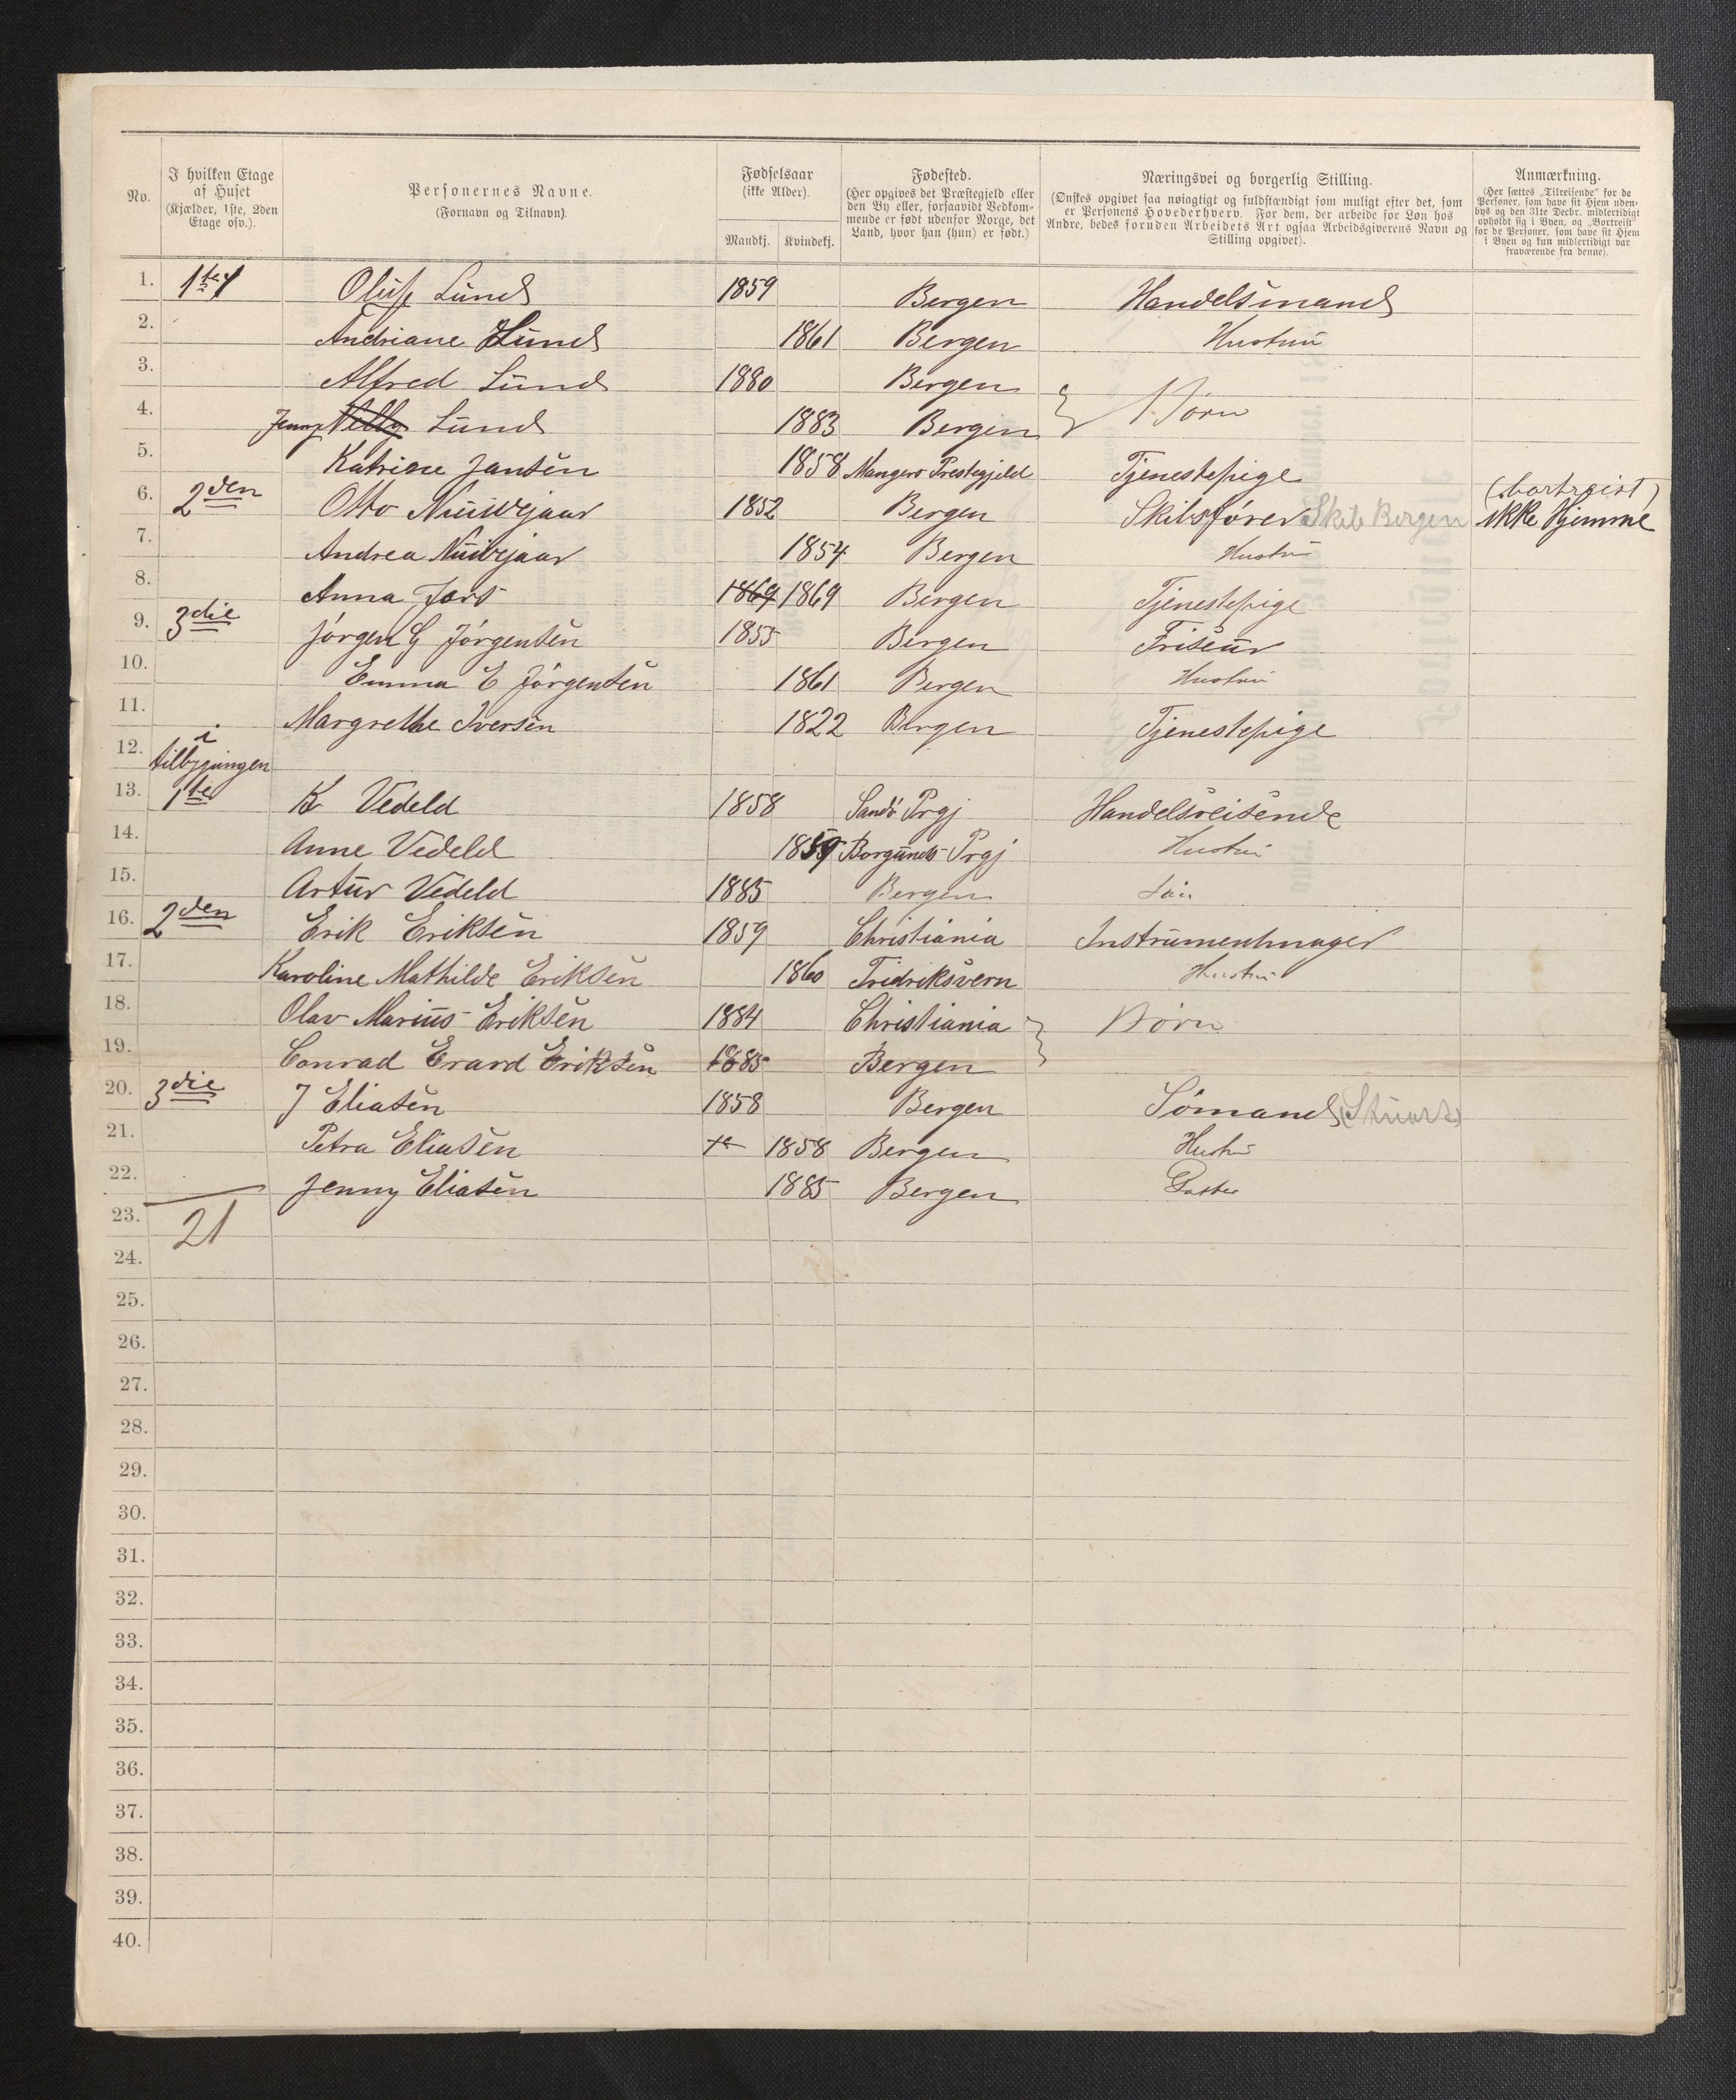 No.
I hvilken Etage af Huset (Kjælder, 1ste, 2den Etage osv.).
Personernes Navne. (Fornavn og Tilnavn).
Fødselsaar (ikke Alder).
Mandkj. Kvindekj.
Fødested. (Her opgives det Præstegjeld eller den By eller, forsaavidt Vedkommende er født udenfor Norge, det Land, hvor han (hun) er født.)
Næringsvei og borgerlig Stilling. (Ønskes opgivet saa nøiagtigt og fuldstændigt som muligt efter det, som er Personens Hovederhverv. For dem, der arbeide for Løn hos Andre, bedes foruden Arbeidets Art ogsaa Arbeidsgiverens Navn og Stilling opgivet).
Anmærkning. (Her sættes „Tilreisende" for de Personer, som have sit Hjem udenbys og den 31te Decbr. midlertidigt opholdt sig i Byen, og „Bortreist" for de Personer, som have sit Hjem i Byen og kun midlertidigt var fraværende fra denne).
1. 1ste Oluf Lund 1859 Bergen Handelsmand
2. Andriane Lund 1861 Bergen Hustru
3. Alfred Lund 1880 Bergen } Børn
4. Jenny Lund 1883 Bergen
5. Katrine Jansen 1858 Mangers Prestegjeld Tjenestepige
6. 2den Otto Nuwejaar 1852 Bergen Skibsfører Skib Bergen (bortreist) ikke Hjemme
7. Andrea Nuwejaar 1854 Bergen Hustru
8. Anna 1869 1869 Bergen Tjenestepige
9. 3die Jørgen G Jørgensen 1855 Bergen Friseur
10. Emma E Jørgensen 1861 Bergen Hustru
11. Margrethe Iversen 1822 Bergen Tjenestepige
12. i tilbygningen
13. 1ste K Vedeld 1858 Sandø Prgj Handelsreisende
14. Anne Vedeld 1859 Borgunds Prgj Hustru
15. Artur Vedeld 1885 Bergen Søn
16. 2den Erik Eriksen 1859 Christiania Instrumentmager
17. Karoline Mathilde Eriksen 1860 Fridriksvern Hustru
18. Olav Marius Eriksen 1884 Christiania } Børn
19. Conrad Evard Eriksen 1885 Bergen
20. 3die J Eliasen 1858 Bergen Sømand (Stuart)
21. Petra Eliasen 1858 Bergen Hustru
22. Jenny Eliasen 1885 Bergen Datter
23. 21
24.
25.
26.
27.
28.
29.
30.
31.
32.
33.
34.
35.
36.
37.
38.
39.
40.